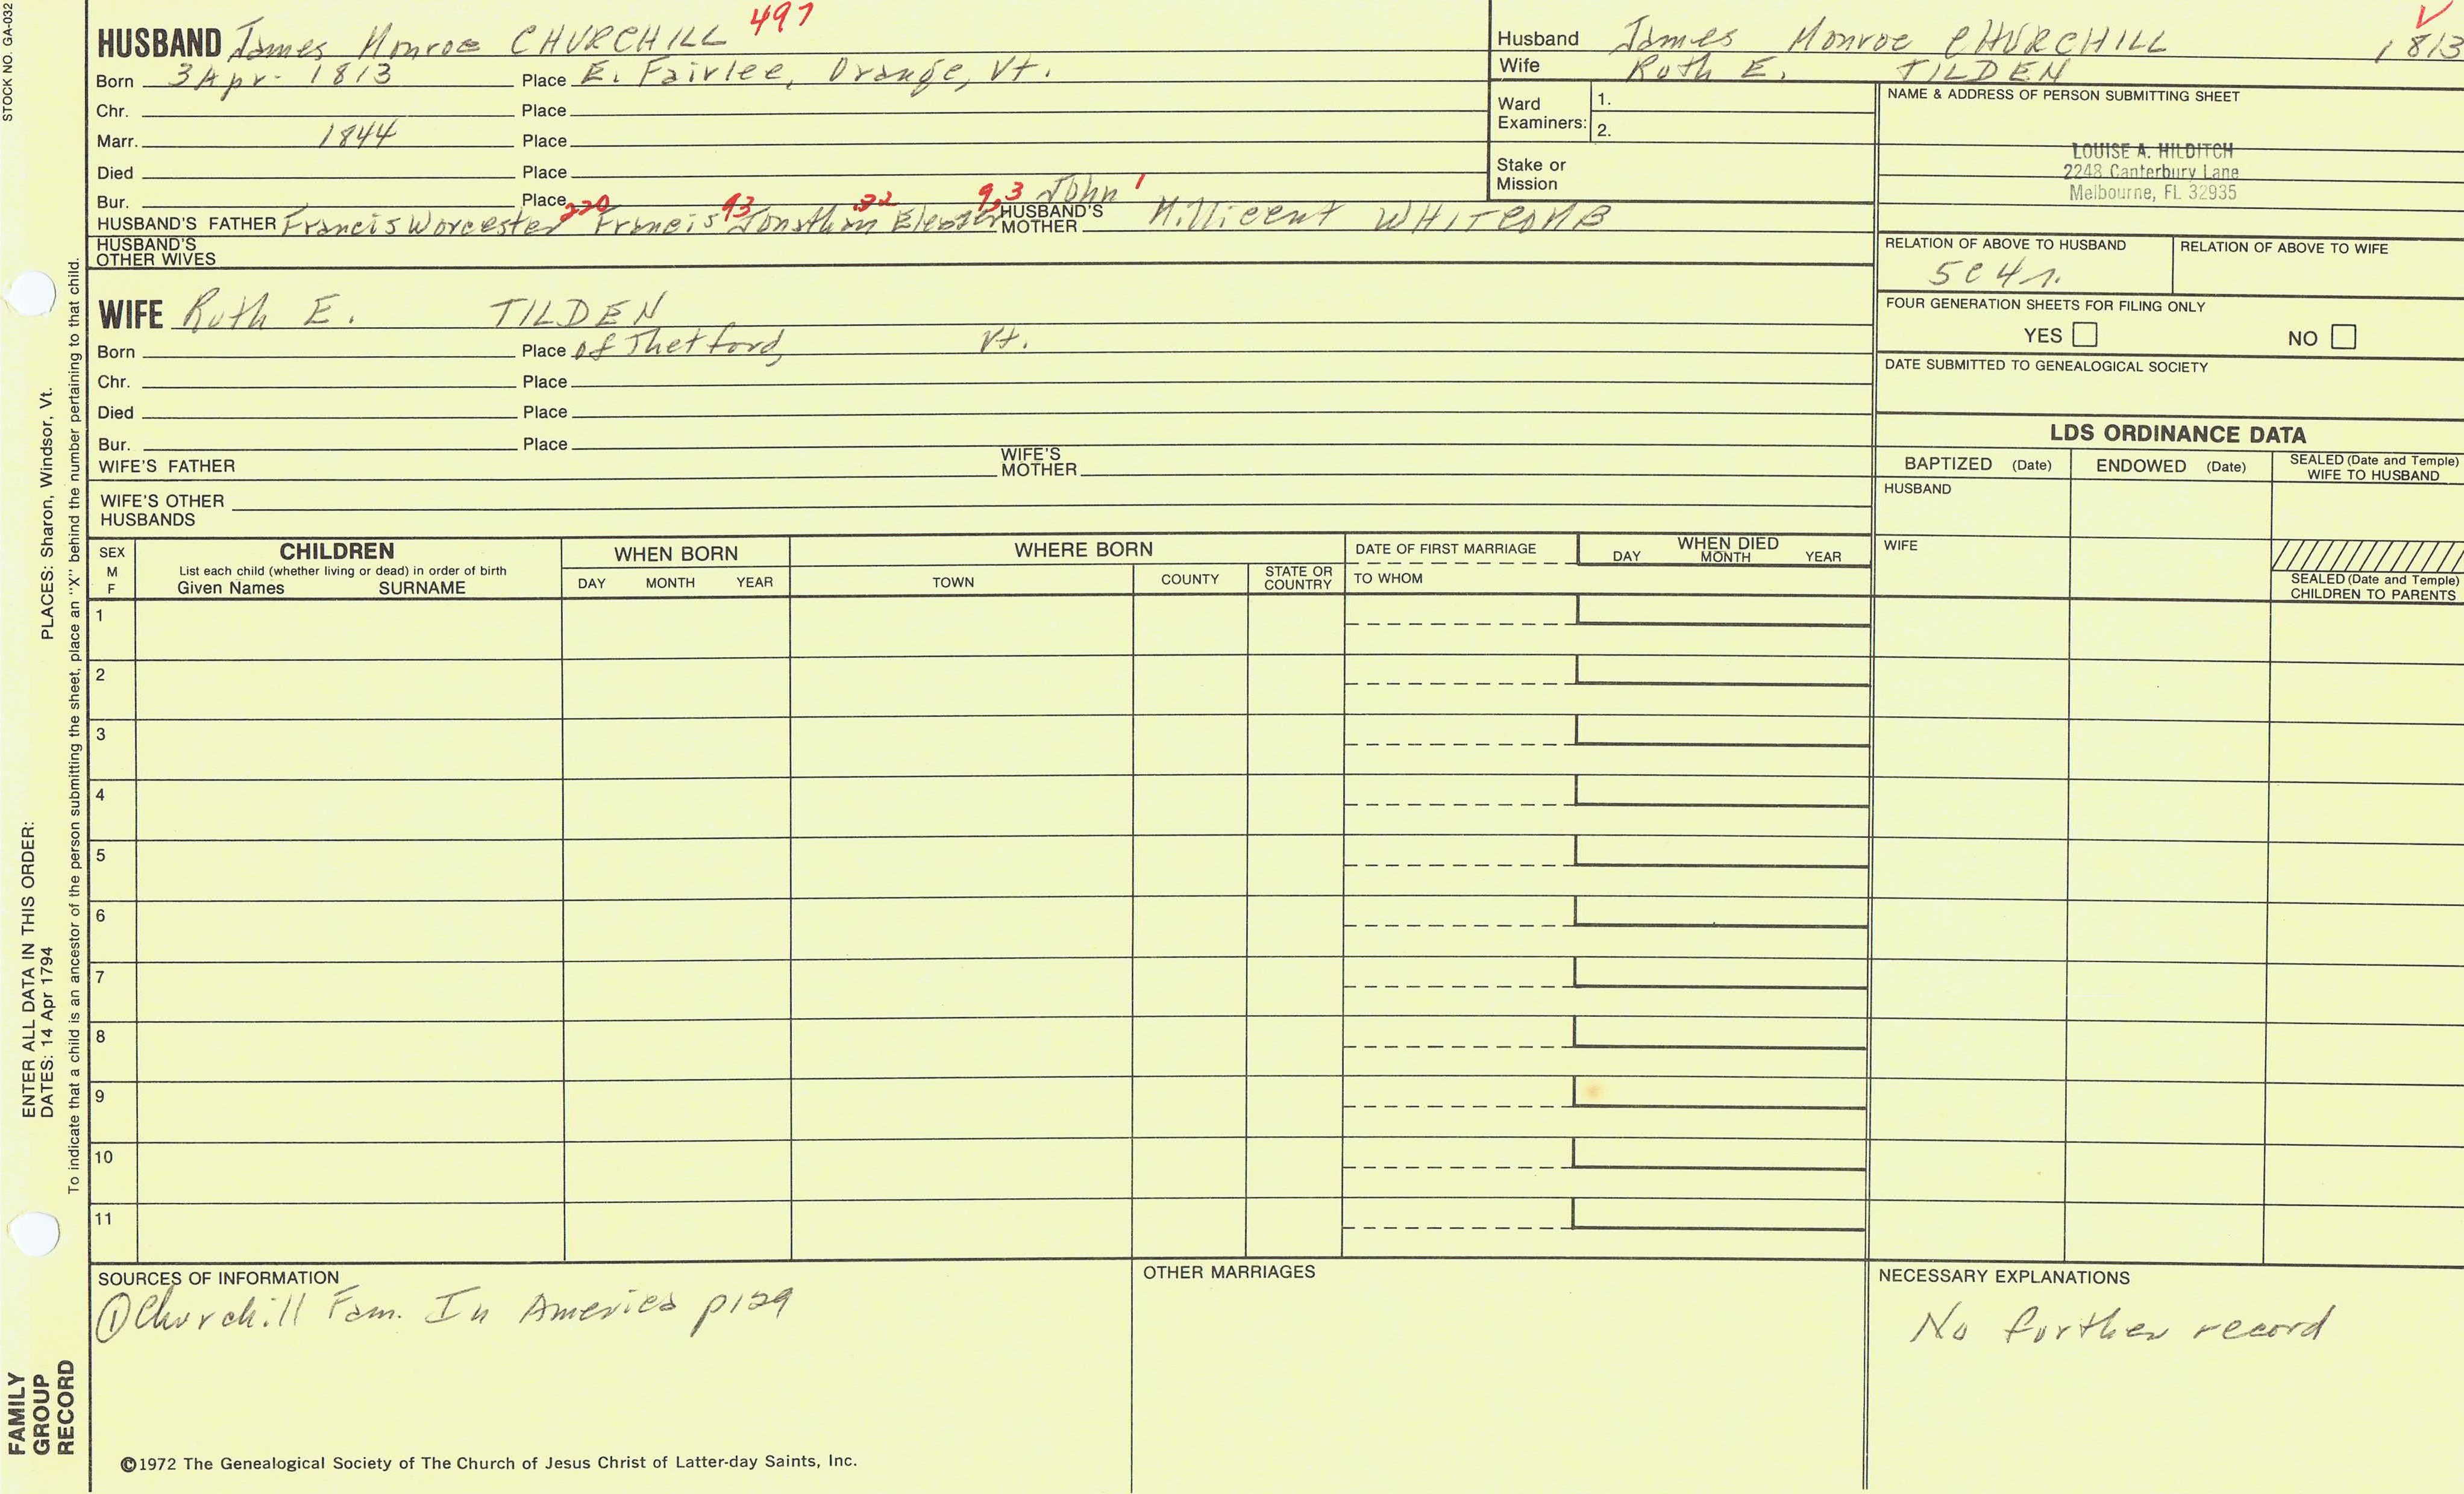 STOCK NO. GA-032
HUSBAND James Monroe CHURCHILL 497
Born 3 Apr. 1813 Place E. Fairlee, Orange, Vt.
Chr. Place
Marr. 1844 Place
Died Place
Bur. Place
HUSBAND'S FATHER Francis Worcester 220 Francis 93 Jonathan 32 Eleazer 9,3 John 1
HUSBAND'S MOTHER Millicent WHITCOMB
HUSBAND'S OTHER WIVES
WIFE Ruth E. TILDEN
Born Place of Thetford, Vt.
Chr. Place
Died Place
Bur. Place
WIFE'S FATHER WIFE'S MOTHER
WIFE'S OTHER HUSBANDS
Husband James Monroe CHURCHILL 1813
Wife Ruth E. TILDEN
Ward Examiners: 1.
2.
Stake or Mission
NAME & ADDRESS OF PERSON SUBMITTING SHEET
LOUISE A. HILDITCH
2248 Canterbury Lane
Melbourne, FL 32935
RELATION OF ABOVE TO HUSBAND RELATION OF ABOVE TO WIFE
5C4r.
FOUR GENERATION SHEETS FOR FILING ONLY
YES NO
DATE SUBMITTED TO GENEALOGICAL SOCIETY
LDS ORDINANCE DATA
BAPTIZED (Date) ENDOWED (Date) SEALED (Date and Temple) WIFE TO HUSBAND
HUSBAND
WIFE
SEALED (Date and Temple) CHILDREN TO PARENTS
SEX M F
CHILDREN
List each child (whether living or dead) in order of birth
Given Names SURNAME
WHEN BORN
DAY MONTH YEAR
WHERE BORN
TOWN COUNTY STATE OR COUNTRY
DATE OF FIRST MARRIAGE
TO WHOM
WHEN DIED
DAY MONTH YEAR
1
2
3
4
5
6
7
8
9
10
11
SOURCES OF INFORMATION
① Churchill Fam. In America p129
OTHER MARRIAGES
NECESSARY EXPLANATIONS
No further record
©1972 The Genealogical Society of The Church of Jesus Christ of Latter-day Saints, Inc.
ENTER ALL DATA IN THIS ORDER:
DATES: 14 Apr 1794 PLACES: Sharon, Windsor, Vt.
To indicate that a child is an ancestor of the person submitting the sheet, place an "X" behind the number pertaining to that child.
FAMILY
GROUP
RECORD